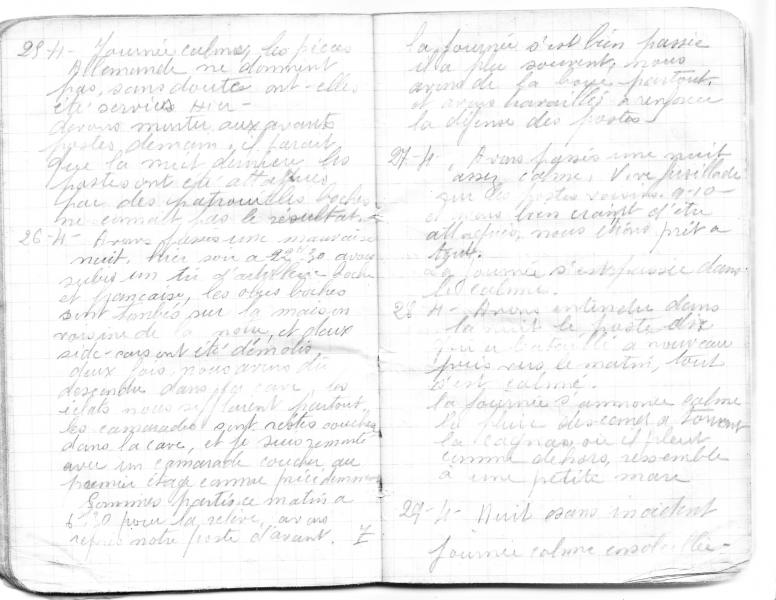 25-4- Journée calme, les pièces
Allemande ne donnent
pas, sans doute ont-elles
été servies Hier-
devons monter aux avants
postes demain, il parait
que la nuit dernière les
postes ont été attaqués
par des patrouilles boches
ne connait pas le résultat.
26-4- Avons passés une mauvaise
nuit. Hier soir a 22h30 avons
subis un tir d'artillerie boche
et française, les obus boches
sont tombés sur la maison
voisine de la notre, et deux
side-cars ont été démolis
deux fois nous avons dû
descendre dans la cave, les
éclats nous sifflaient partout
les camarades sont restés couchés
dans la cave, et je suis remonté
avec un camarade coucher au
premier étage comme précédemment
Sommes partis ce matin a
6h30 pour la relève, avons
repris notre poste d'avant.
la journée s'est bien passée
il a plu souvent, nous
avons de la boue partout,
et avons travaillé a renforcer
la défense des postes
27-4, Avons passés une nuit
assez calme. Vive fusillade
sur les postes voisins. 9-10-
et nous bien craint d'être
attaqués, nous étions prêt a
tout.
La journée s'est passée dans
le calme.
28 4- Avons entendu dans
la nuit le poste dix
a nouveau
puis vers le matin, tout
s'est calmé.
la journée s'annonce calme
la pluie descend a torrent
la cagna, où il pleut
comme dehors, ressemble
à une petite mare
29-4- Nuit sans incident
journée calme ensoleillée-